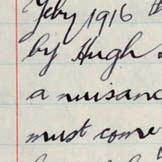 Feby 1916
by Hugh
a nuisanc
must come